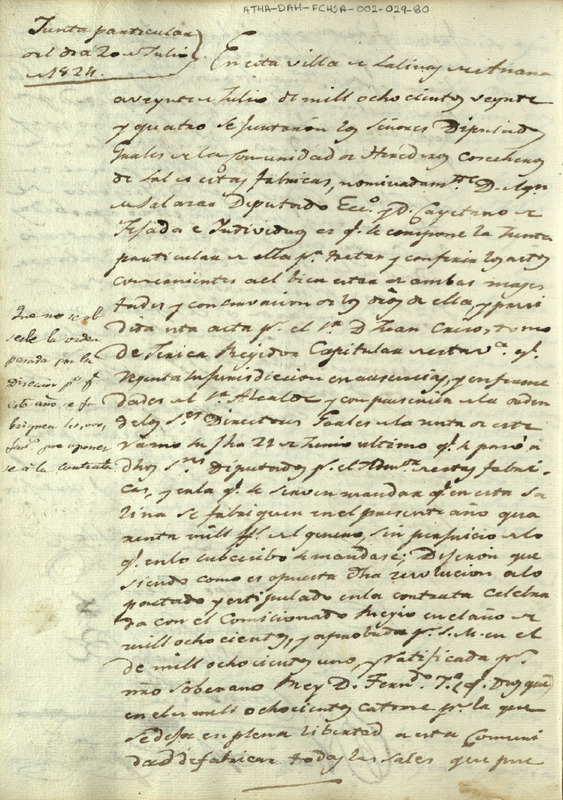 ATHA-DAH-FCHSA-002-029-80
Junta particular
del dia 20 de Julio
de 1824.
En esta villa de Salinas de Añana
a veynte de Julio de mill ochocientos veynte
y quatro se juntaron los Señores Diputados
Grales de la Comunidad de Herederos Cosecheros
de Sal de estas fabricas, nominadamte D.
de Salazar Diputado Ecco. y D. Cayetano de
Tejada e Individuos es qe. se compone la Junta
particular de ella pa. tratar y conferir los actos
concernientes al bien estar de ambas mages
tades y conservacion de los dros de ella, y presi
dida esta acta pr. el Sr. D. Juan
de Regidor Capitular de esta Va. qe.
regenta la jurisdiccion en ausencias, y enferme
dades del Sr. Alcalde y con presencia de la orden
de los Sres. Directores Grales de la renta de este
ramo su fha 22 de Junio ultimo qe. se pasó a
dhos Sres. Diputados pr. el Admor. de estas fabri
cas, y en la qe. se sirven mandar qe. en esta Sa
lina se fabriquen en el presente año qua
renta mill fs. del genero, sin perjuicio de lo
qe. en lo subcesibo se mandase; Dijeron que
siendo como es opuesta dha resolucion a lo
pactado y estipulado en la contrata celebra
da con el Comisionado Regio en el año de
mill ochocientos, y aprobada pr. S. M. en el
de mill ochocientos uno, y ratificada pr.
nro Soberano Rey D. Ferndo. 7o. (q. Dios gue)
en el de mill ochocientos catorce pr. la que
se deja en plena libertad a esta Comuni
dad de fabricar todas las sales que pue
Que no se ob
serbe la orden
pasada por la
Direccion pa. qe.
este año se fa
briquen 40,000,
fans. por oponer
se a la contrata